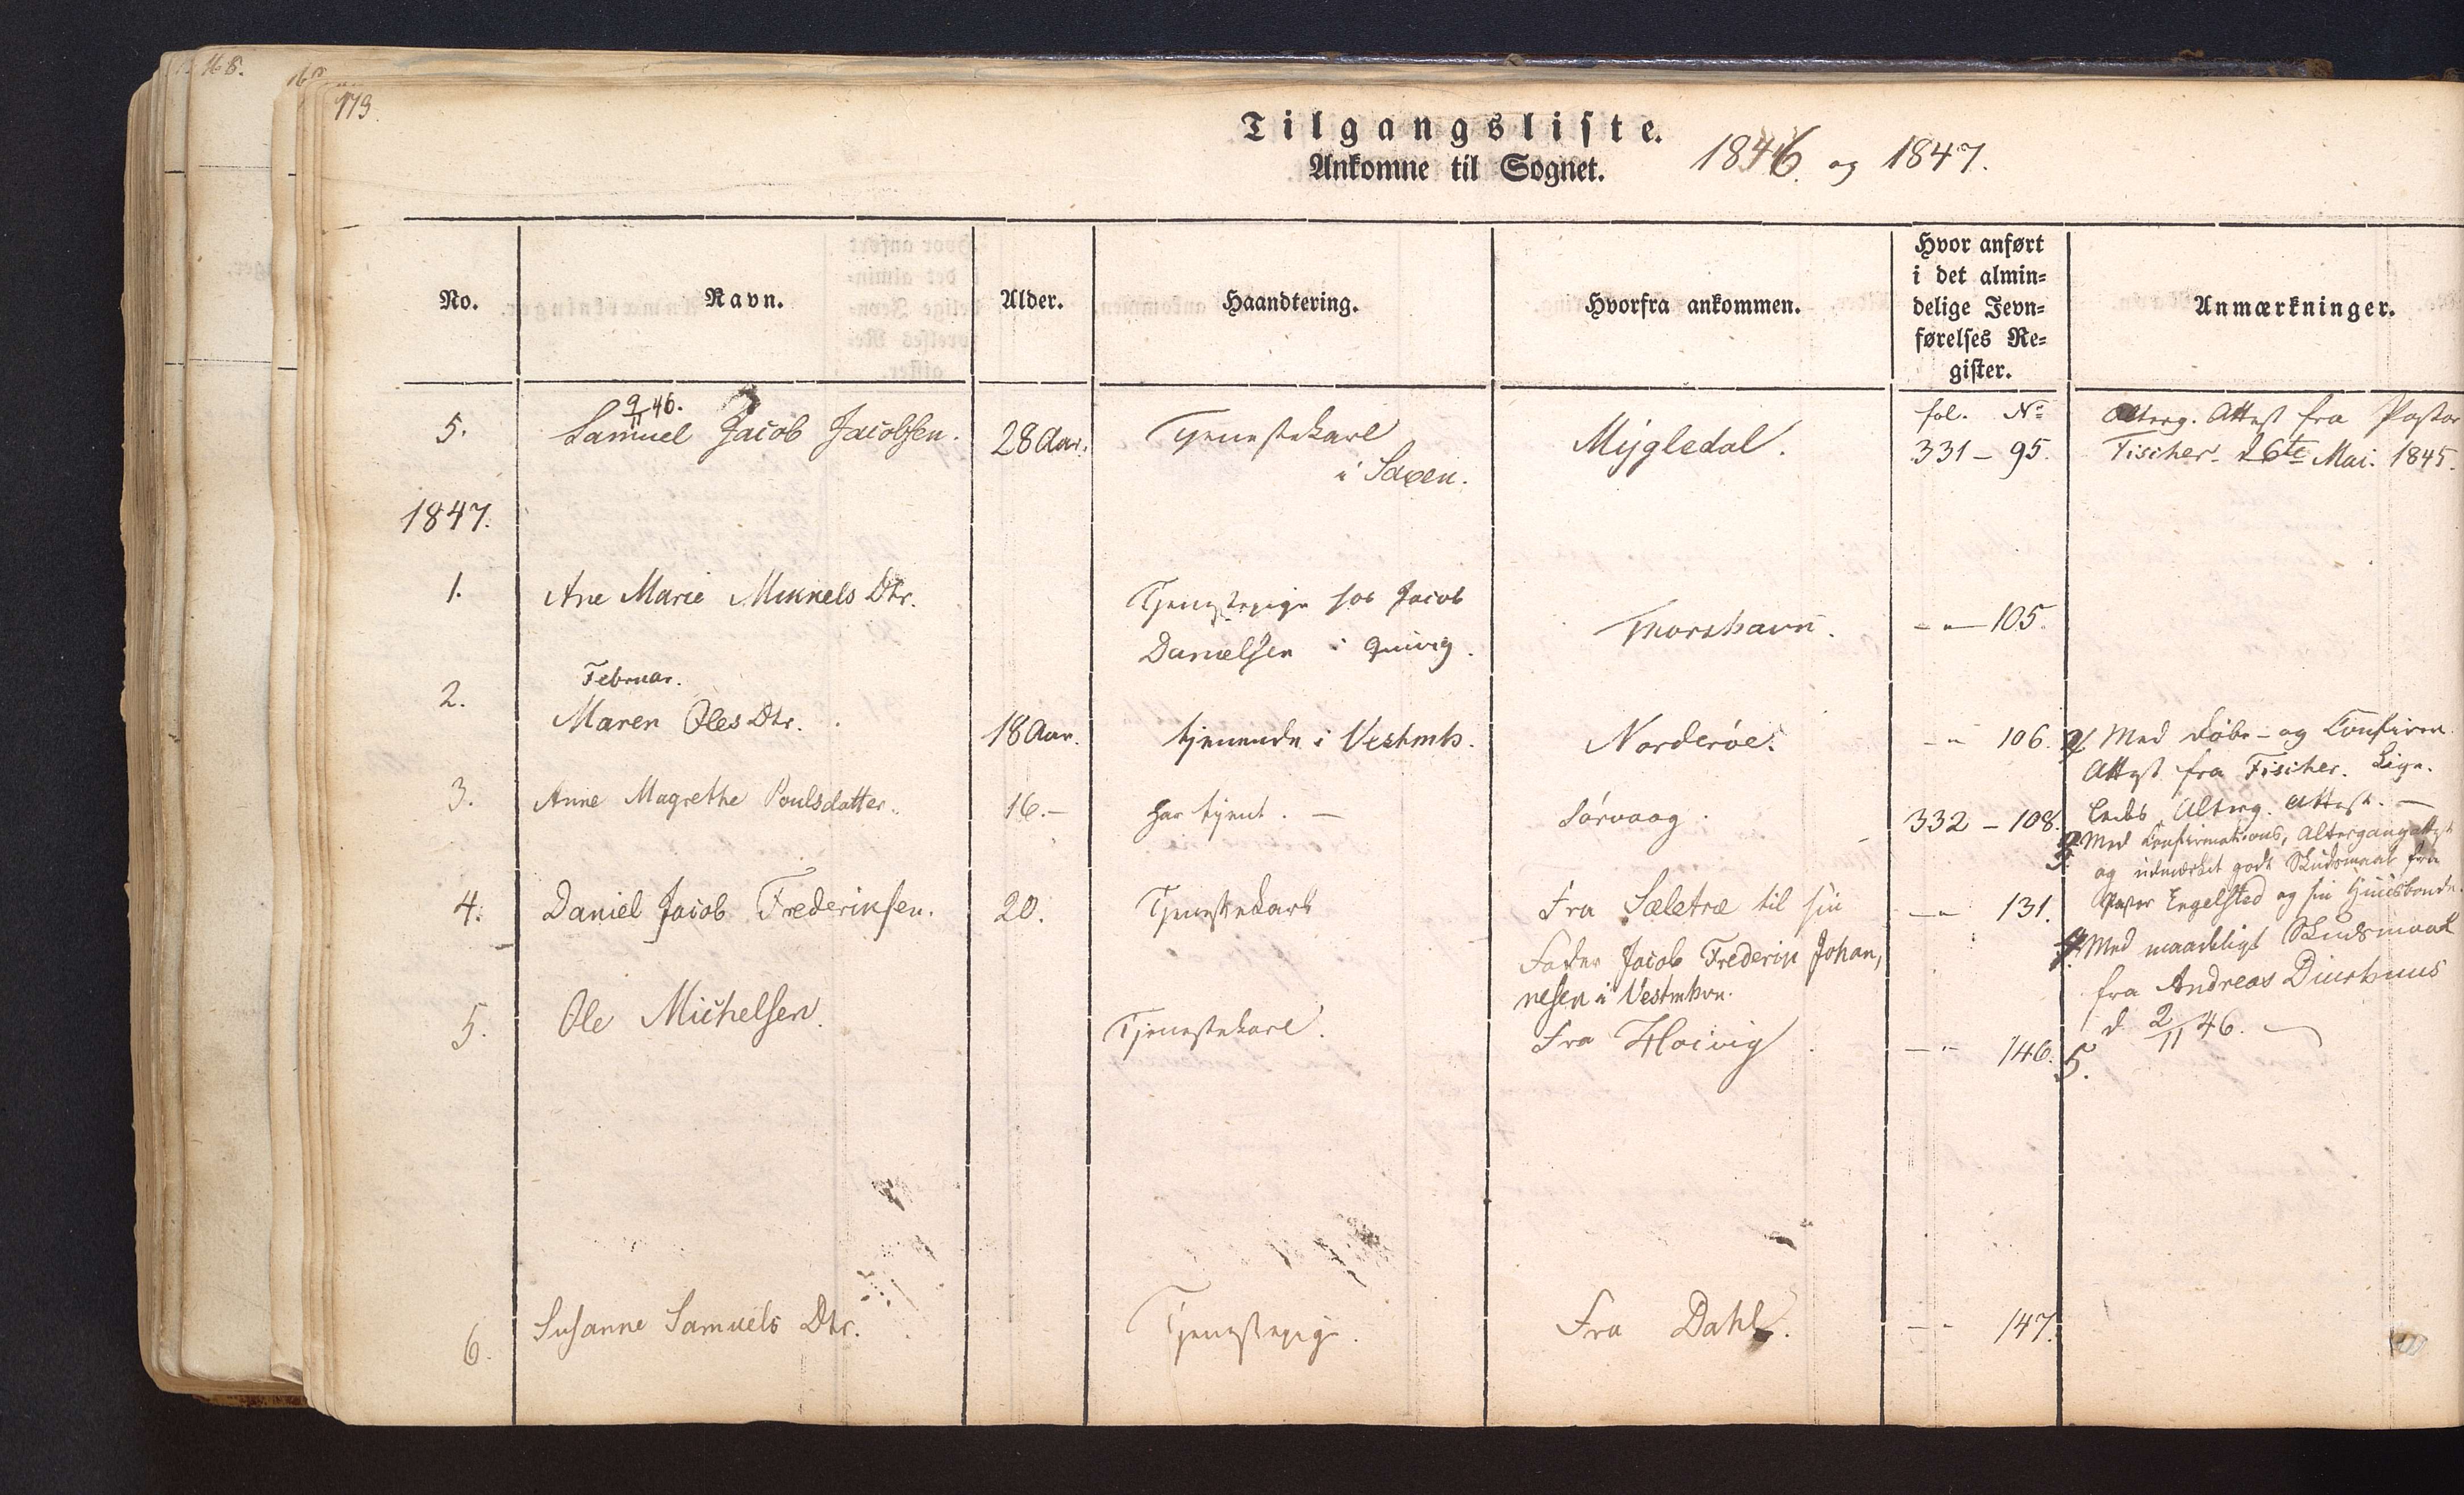 168.
173.
Tilgangsliste.
Ankomne til Sognet.
1846. og 1847.
No.
Navn.
Alder.
Haandtering.
Hvorfra ankommen.
Hvor anført
i det almin=
delige Jevn=
førelses Re=
gister.
Anmærkninger.
9/11 46.
5. Samuel Jacob Jacobsen. 28 Aar. Tjenestekarl
i Saxen.
Mygledal.
fol. No
331 - 95.
Alterg. Attest fra Pastor
Fischer. d 6te Mai. 1845.
1847.
1. Ane Marie Mikkels Dtr.
Tjenestepige hos Jacob
Danielsen i Qvivig.
Thorshavn.
- " - 105.
Februar.
2. Maren Oles Dtr. 18 Aar. tjenende i Vestmh. Norderøe. - " 106.
2/ Med Døbe- og Confirm.
Attest fra Fischer. Lige-
leeds Alterg. Attest. -
3. Anne Magrethe Poulsdatter. 16.- har tjent. - Sørvaag. 332 - 108.
3. Med Confirmations, Altergangsattest
og udmærket godt Skudsmaal fra
Pastor Engelsted og sin Huusbonde.
4. Daniel Jacob Frederiksen. 20. Tjenestekarl
Fra Sæletræ til sin
Fader Jacob Frederik Johan,
nesen i Vestmhvn.
- " 131.
4. Med maadeligt Skudsmaal
fra Andreas Diurhuus
d. 2/11 46.
5. Ole Michelsen. Tjenestekarl. Fra Hoivig - " - 146.
5.
6. Susanne Samuels Dtr. Tjenestepige. Fra Dahl. - " 147.